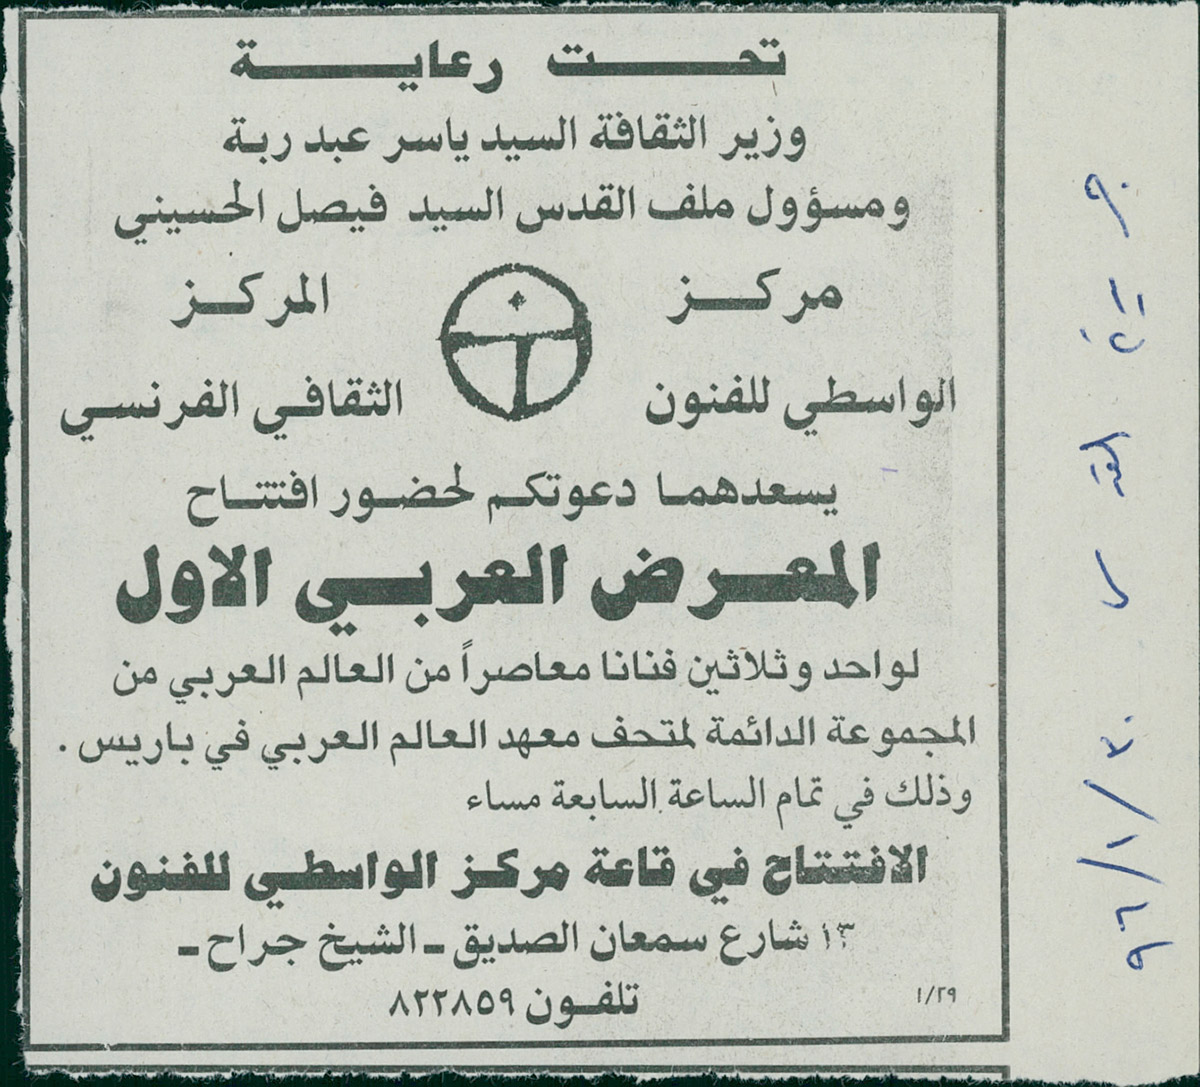 تحت رعاية
وزير الثقافة السيد ياسر عبد ربة
ومسؤول ملف القدس السيد فيصل الحسيني
مركز
الواسطي للفنون
المركز
الثقافي الفرنسي
يسعدهما دعوتكم لحضور افتتاح
المعرض العربي الاول
لواحد وثلاثين فنانا معاصراً من العالم العربي من
المجموعة الدائمة لمتحف معهد العالم العربي في باريس .
وذلك في تمام الساعة السابعة مساء
الافتتاح في قاعة مركز الواسطي للفنون
١٣ شارع سمعان الصديق - الشيخ جراح -
تلفون ٨٢٢٨٥٩
١/٢٩
جريدة القدس ٩٦/١/٣٠